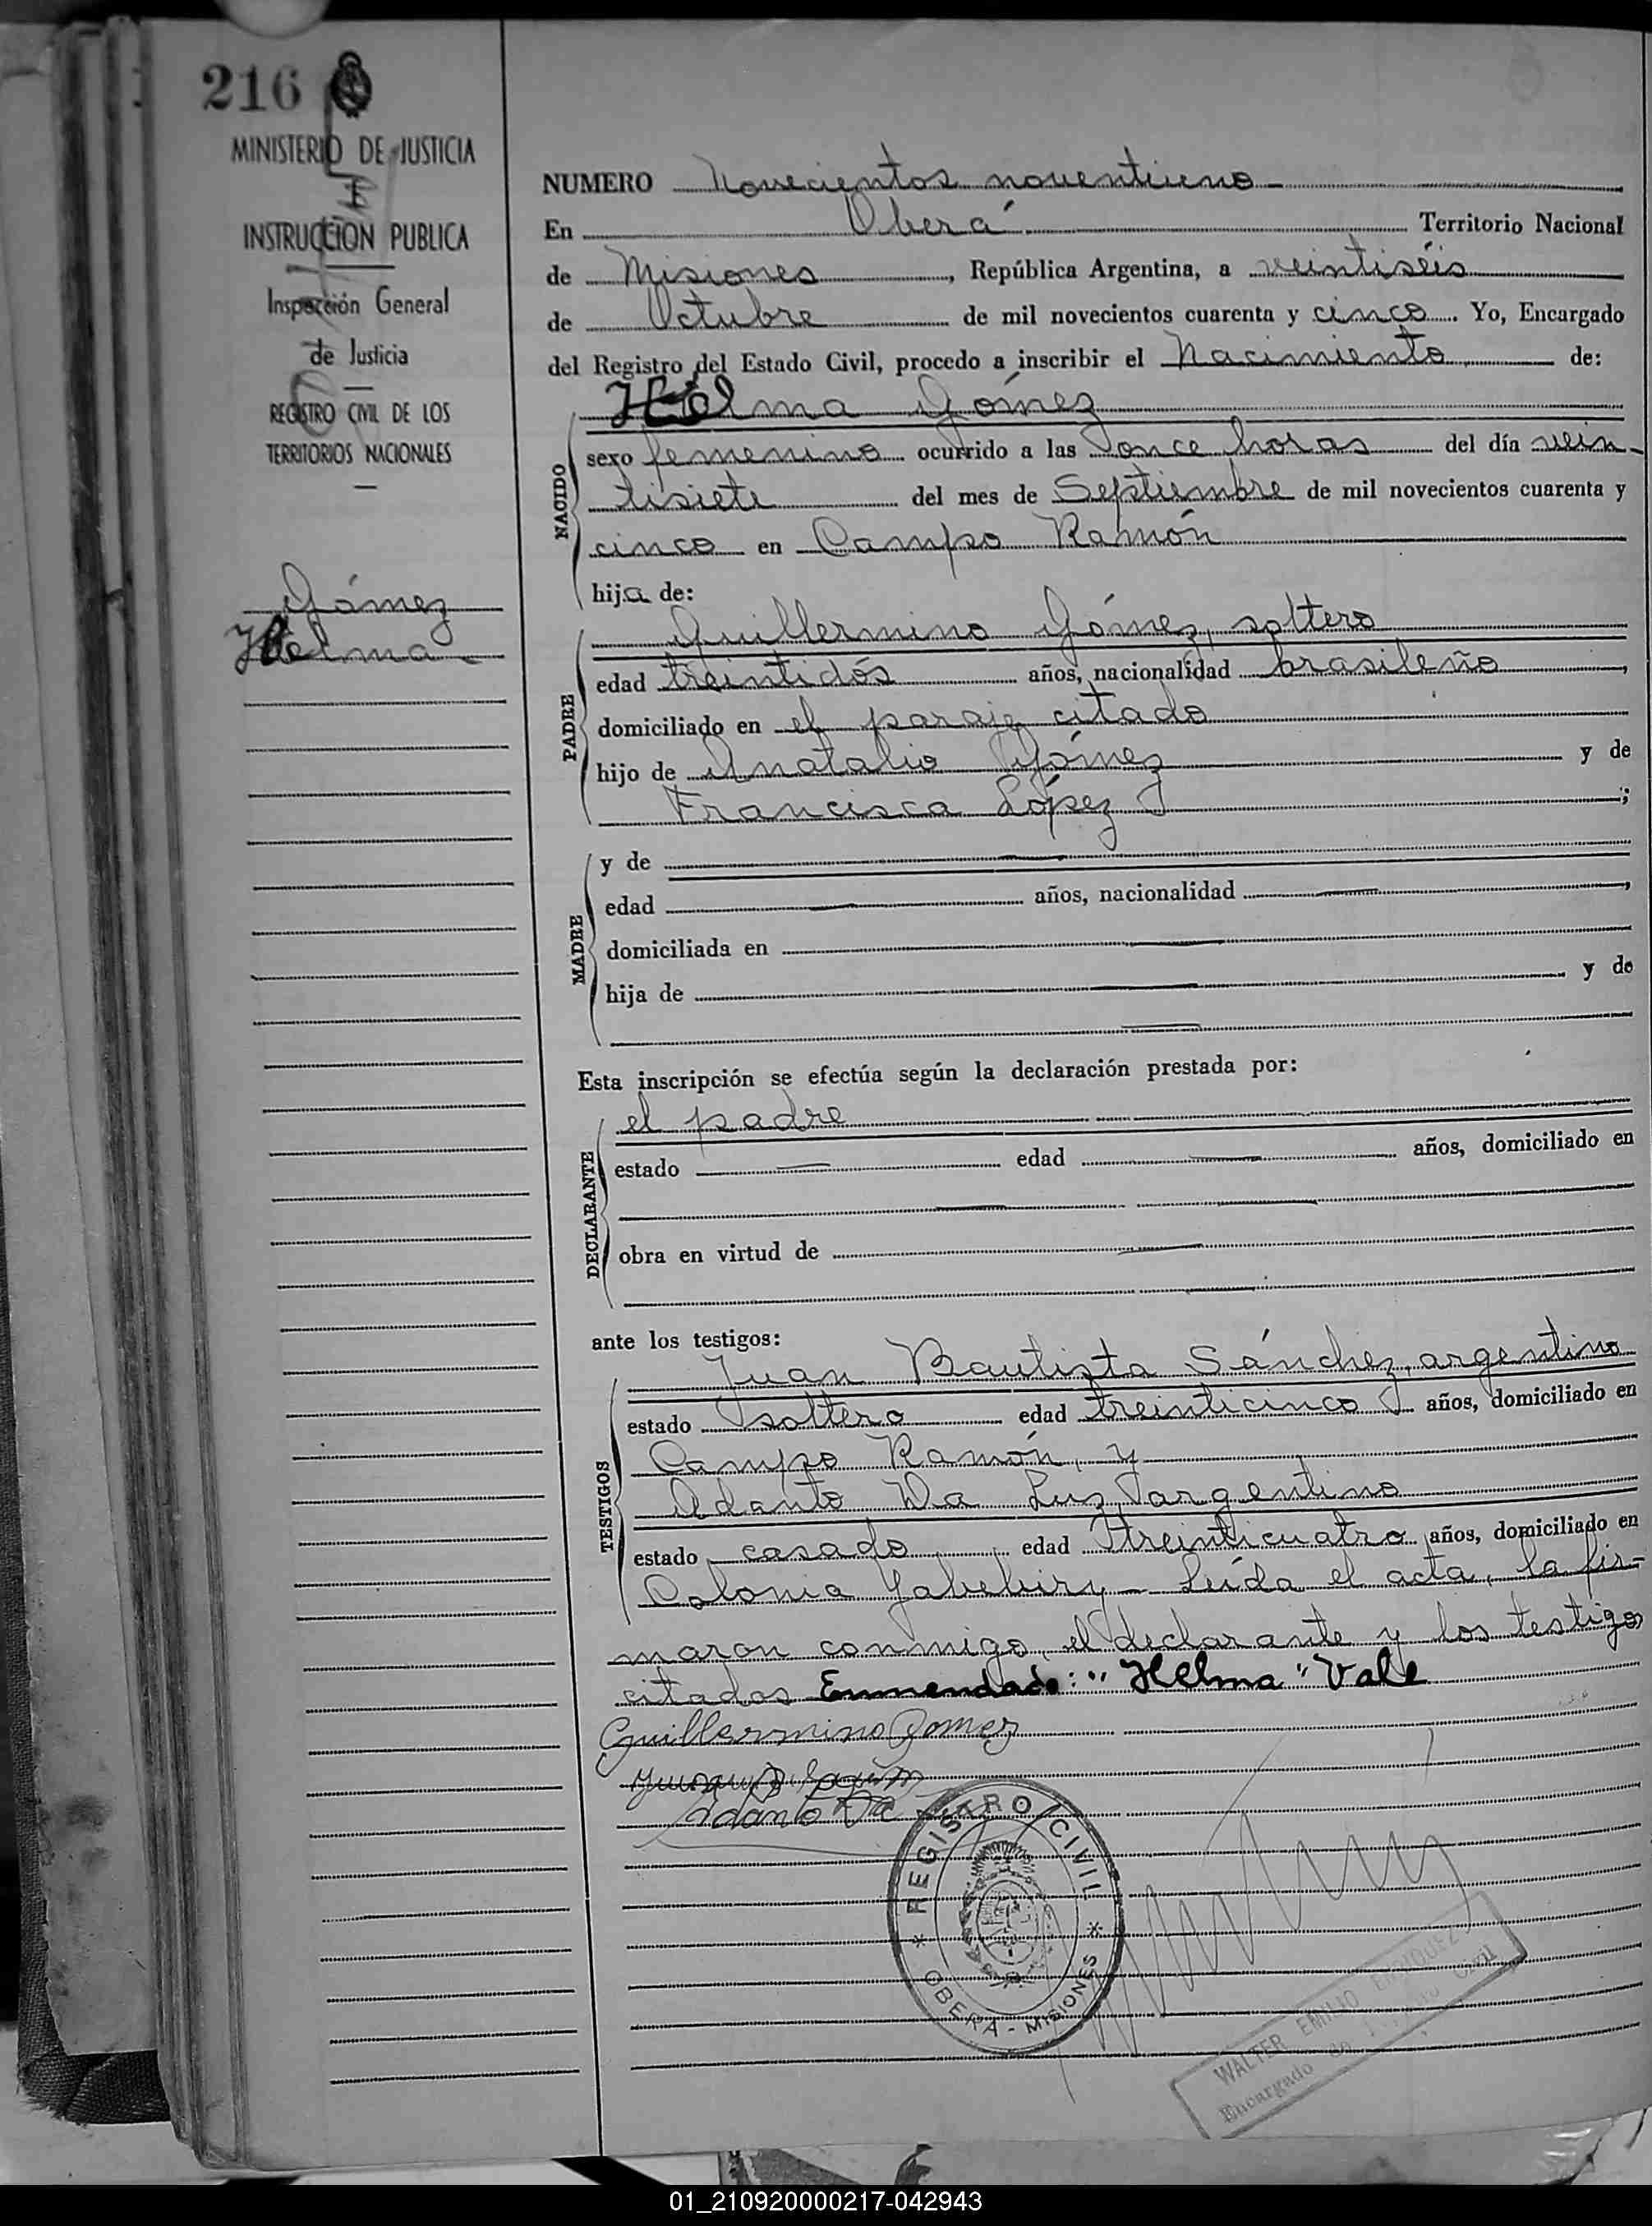 216
MINISTERIO DE JUSTICIA
E
INSTRUCCION PUBLICA
Inspección General
de Justicia
REGISTRO CIVIL DE LOS
TERRITORIOS NACIONALES
Gómez
Helma
NUMERO Novecientos noventiuno
En Oberá Territorio Nacional
de Misiones, República Argentina, a veintiséis
de Octubre de mil novecientos cuarenta y cinco. Yo, Encargado
del Registro del Estado Civil, procedo a inscribir el Nacimiento de:
Helma Gómez
NACIDO
sexo femenino ocurrido a las once horas del día vein-
tisiete del mes de Septiembre de mil novecientos cuarenta y
cinco en Campo Ramón
hija de:
PADRE
Guillermino Gómez, soltero
edad treintidós años, nacionalidad brasileño,
domiciliado en el paraje citado
hijo de Anatalio Gómez y de
Francisca López;
MADRE
y de
edad años, nacionalidad ,
domiciliada en
hija de y de
Esta inscripción se efectúa según la declaración prestada por:
DECLARANTE
el padre
estado edad años, domiciliado en
obra en virtud de
ante los testigos:
TESTIGOS
Juan Bautista Sánchez, argentino
estado soltero edad treinticinco años, domiciliado en
Campo Ramón, y
Adanto Da Luz, argentino
estado casado edad treinticuatro años, domiciliado en
Colonia Yabebiry - Leída el acta, la fir-
maron conmigo, el declarante y los testigos
citados Enmendado: "Helma" Vale
Guillermino Gomez
Adanto Da
REGISTRO CIVIL
* OBERA - MISIONES *
WALTER EMILIO ENRIQUEZ
Encargado Civil
01_210920000217-042943